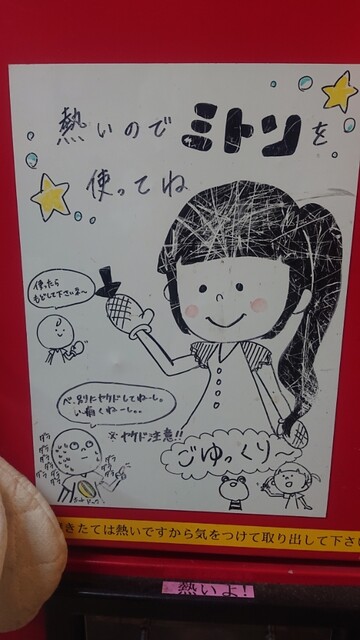 熱いので ミトンを
使ってね
使ったら
もどして下さいよ〜
べ、別にヤケドしてねーし。
い痛くねーし。。
※ヤケド注意!!
ごゆっくり〜
きたては熱いですから気をつけて取り出して下さ
熱いよ!